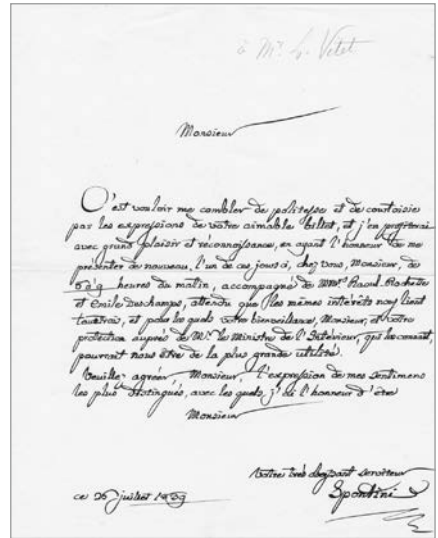 à Mr. L. Vitet
Monsieur
C'est vouloir me combler de politesse et de courtoisie
par les expressions de votre aimable billet, et j'en profiterai
avec grand plaisir et réconnaissance, en ayant l'honneur de me
présenter de nouveau, l'un de ces jours à, chez vous, Monsieur, de
heures du matin, accompagné de Mrs. Raoul-Rochette
et Emile Deschamps, attendu que les mêmes intérêts nous lient
tous trois, et pour les quels votre bienveillance, Monsieur, et votre
protection auprès de Mr. le Ministre de l'Intérieur, qui les connait,
pourrait nous être de la plus grande utilité.
Veuillez agréer Monsieur, l'expression de mes sentimens
les plus distingués, avec les quels j'ai l'honneur d'être
Monsieur
Votre très obéissant serviteur
Spontini
ce 26 juillet